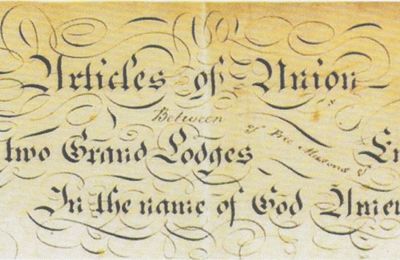 Articles of Union
Between
two Grand Lodges of Free Masons of
In the name of God Amen